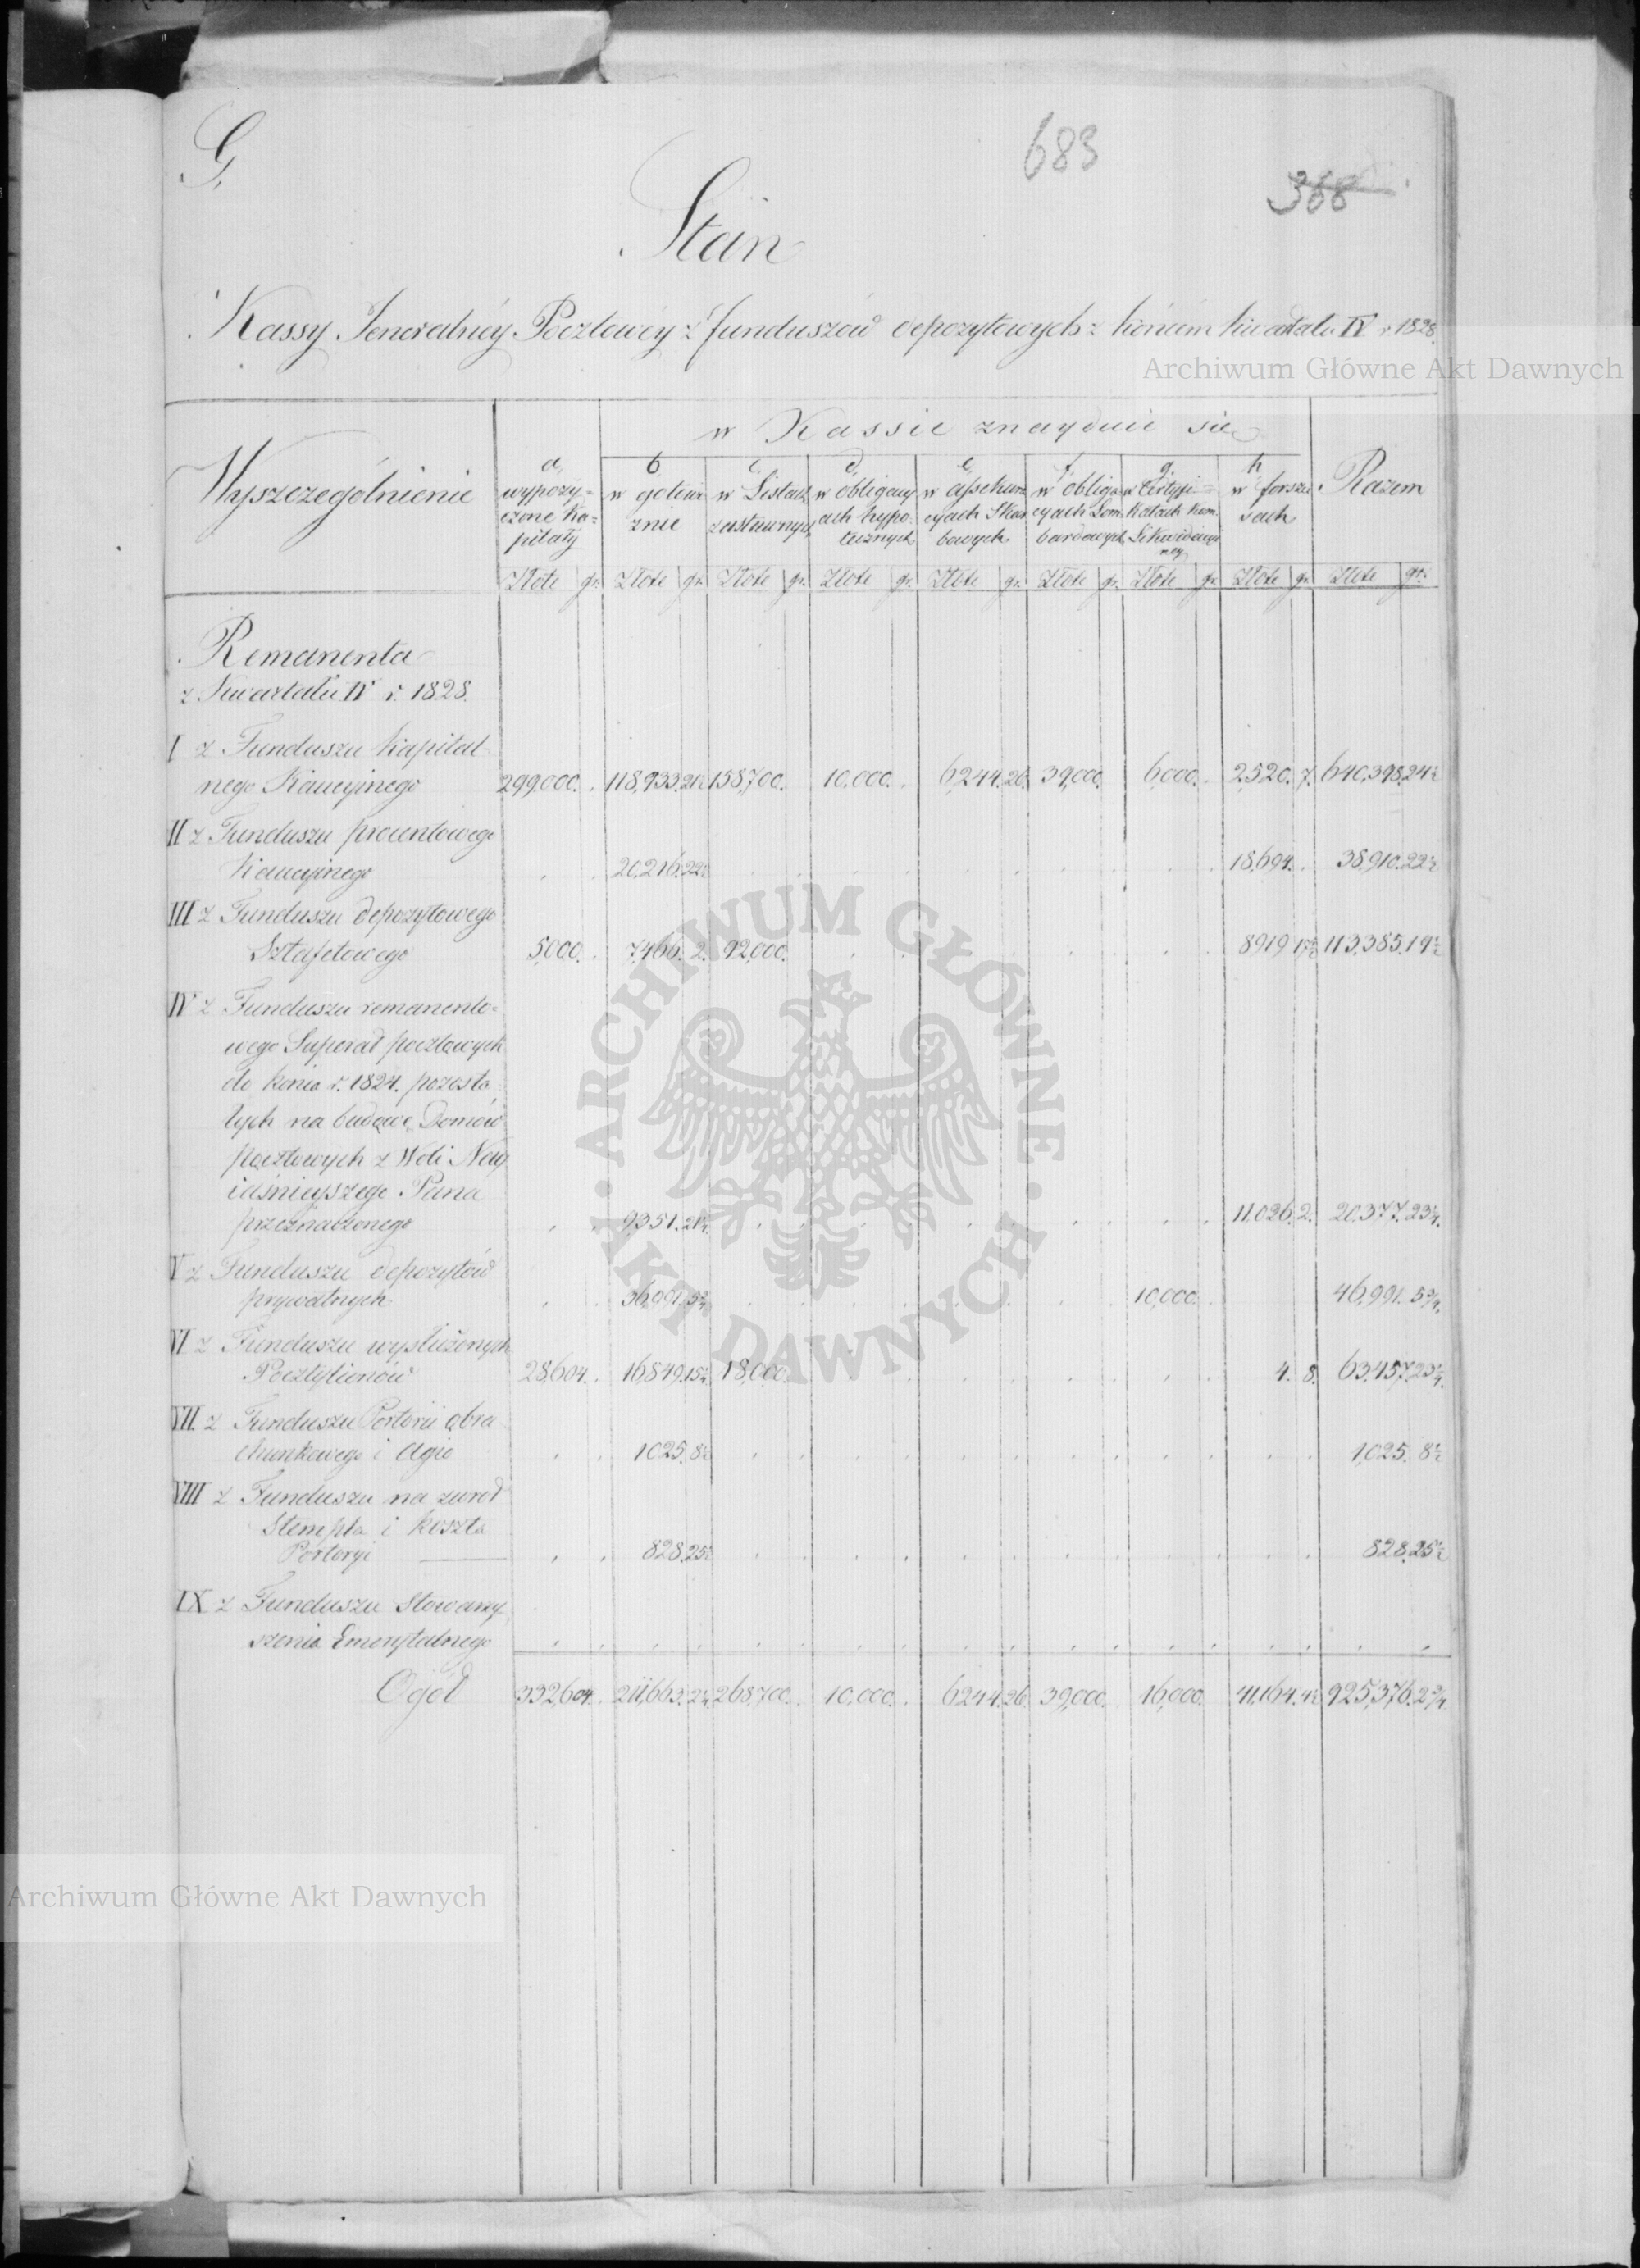 G.
683
368
Stan
Kassy Jeneralnéy Pocztowéy z funduszów depozytowych z końcem kwartału IV r. 1828.
Archiwum Główne Akt Dawnych
Wyszczególnienie
w Kassie znayduie się
Razem
a, wypożyczone kapitały
b w gotowiznie
c w Listach zastawnych
d w obligacyach hypotecznych
e w assekuracyach Skarbowych
f w obligacyach Lombardowych
g w Certyfikatach Kom. Likwidacyjney
h w forszusach
Złote gr. Złote gr. Złote gr. Złote gr. Złote gr. Złote gr. Złote gr. Złote gr. Złote gr.
Remanenta
z Kwartału IV r. 1828.
I z Funduszu Kapital-
nego Kaucyinego 299,000. 118,933.21½ 158,700. 10,000. 6,244.26. 39,000. 6,000. 2,520. 7. 640,398.24½
II z Funduszu procentowego
Kaucyinego 20,216.22½ 18,694. 38,910.22½
III z Funduszu depozytowego
Sztafetowego 5,000. 7,466. 2. 92,000. 8919 17½ 113,385.19½
IV z Funduszu remanento=
wego Superat pocztowych
do końca r. 1824. pozosta
łych na budowę Domów
pocztowych z Woli Nay
iaśnieyszego Pana
przeznaczonego 9,351.21¼. 11,026. 2. 20,377.23¼.
V z Funduszu depozytów
prywatnych 36,991.5¾ 10,000. 46,991.5¾.
VI z Funduszu wysłużonych
Pocztylionów 28,604. 16,849.15¼ 18,000. 4. 8. 63,457.23¼.
VII. z Funduszu Portorii obra
chunkowego i Agio 1025.8½ 1,025. 8½
VIII z Funduszu na zwrot
Stempla i koszta
Portoryi 828.25½ 828.25½
IX z Funduszu Stowarzy
szenia Emerytalnego
Ogół 332,604. 211,663.2¼ 268,700. 10,000. 6244.26. 39,000. 16,000. 41,164.4½ 925,376.2¾.
ARCHIWUM GŁÓWNE AKT DAWNYCH
Archiwum Główne Akt Dawnych